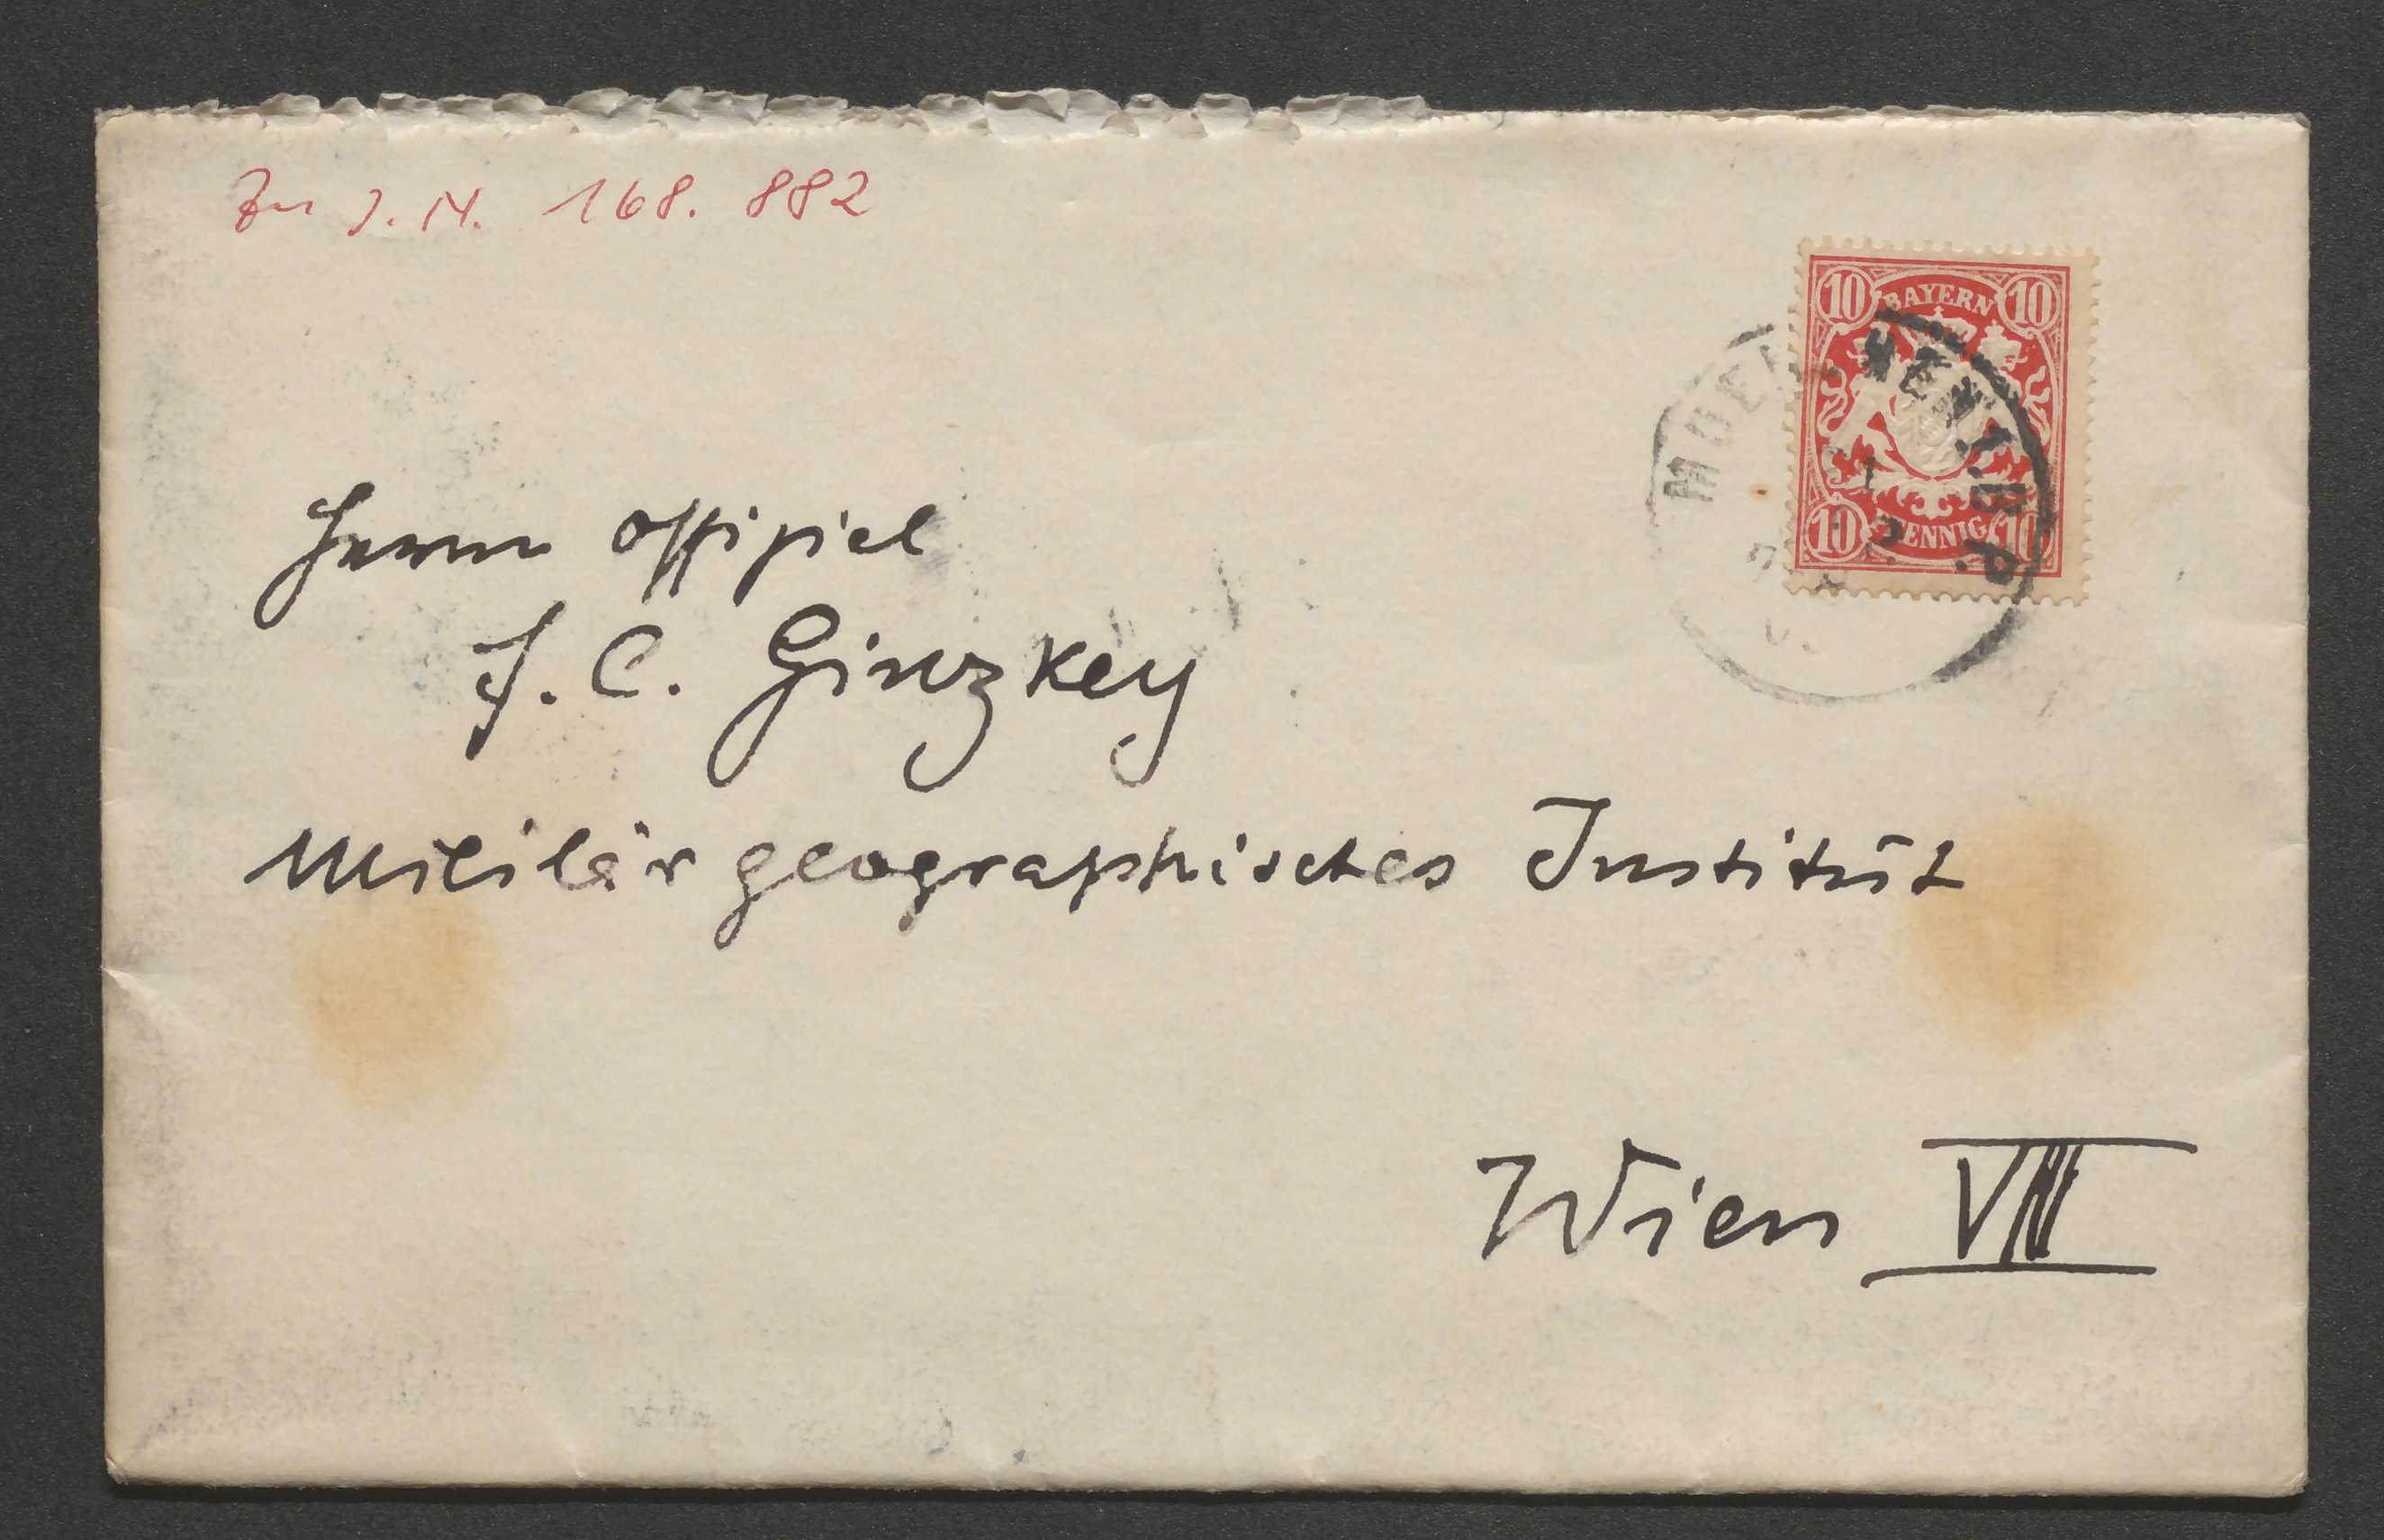 Zu I. N. 168.882
10 BAYERN 10
10 PFENNIG 10
Herrn Offizial
F. C. Ginzkey
Militärgeographisches Institut
Wien VIII